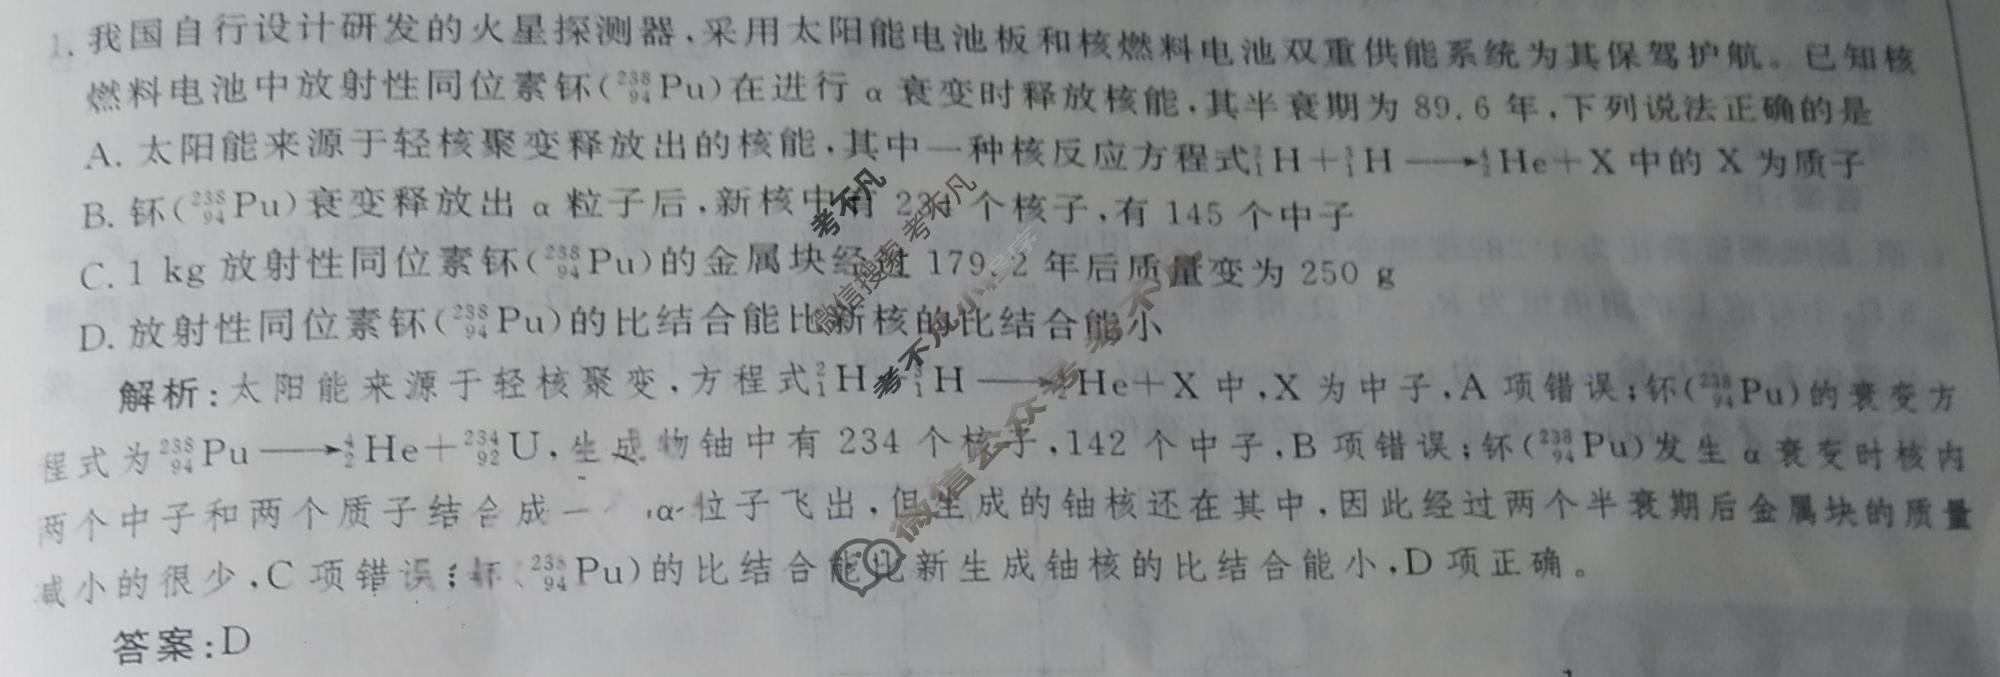 1. 我国自行设计研发的火星探测器,采用太阳能电池板和核燃料电池双重供能系统为其保驾护航。已知核
燃料电池中放射性同位素钚(²³⁸₉₄Pu)在进行 α 衰变时释放核能,其半衰期为 89.6 年,下列说法正确的是
A. 太阳能来源于轻核聚变释放出的核能,其中一种核反应方程式²₁H+³₁H⟶⁴₂He+X 中的 X 为质子
B. 钚(²³⁸₉₄Pu)衰变释放出 α 粒子后,新核中有 234 个核子,有 145 个中子
C. 1 kg 放射性同位素钚(²³⁸₉₄Pu)的金属块经过 179.2 年后质量变为 250 g
D. 放射性同位素钚(²³⁸₉₄Pu)的比结合能比新核的比结合能小
解析:太阳能来源于轻核聚变,方程式²₁H+³₁H⟶⁴₂He+X 中,X 为中子,A 项错误;钚(²³⁸₉₄Pu)的衰变方
程式为²³⁸₉₄Pu⟶⁴₂He+²³⁴₉₂U,生成物铀中有 234 个核子,142 个中子,B 项错误;钚(²³⁸₉₄Pu)发生 α 衰变时核内
两个中子和两个质子结合成一 α 粒子飞出,但生成的铀核还在其中,因此经过两个半衰期后金属块的质量
减小的很少,C 项错误;钚(²³⁸₉₄Pu)的比结合能比新生成铀核的比结合能小,D 项正确。
答案:D
考不凡
微信搜索 考不凡
考不凡小程序
微信公众号 考不凡